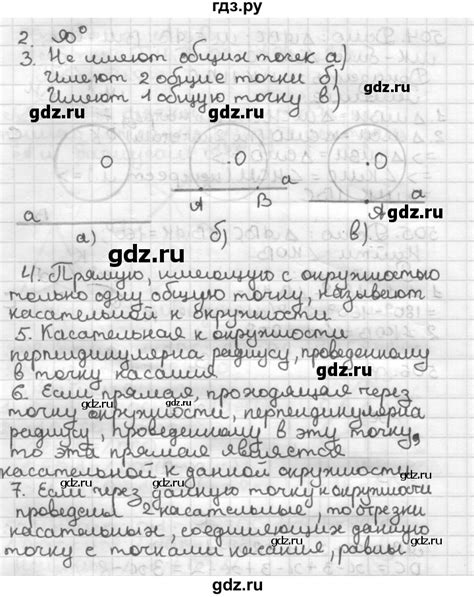 гдз.ру
2. 90°
3. Не имеют общих точек а)
Имеют 2 общие точки б)
Имеют 1 общую точку в)
gdz.ru
gdz.ru
O
O
O
a
A
B
a
A
a
а)
б)
в).
gdz.ru
gdz.ru
4. Прямую, имеющую с окружностью
только одну общую точку, называют
касательной к окружности.
gdz.ru
5. Касательная к окружности
перпидикулярна радиусу, проведенному
в точку касания.
gdz.ru
6. Если прямая, проходящая через
точку окружности, перпендикулярна
gdz.ru
радиусу, проведенному в эту точку,
то эта прямая является
касательной к данной окружности.
gdz.ru
7. Если через данную точку к окружности
проведены 2 касательные, то отрезки
gdz.ru
касательных, соединяющих данную
точку с точками касания, равны
gdz.ru
gdz.ru